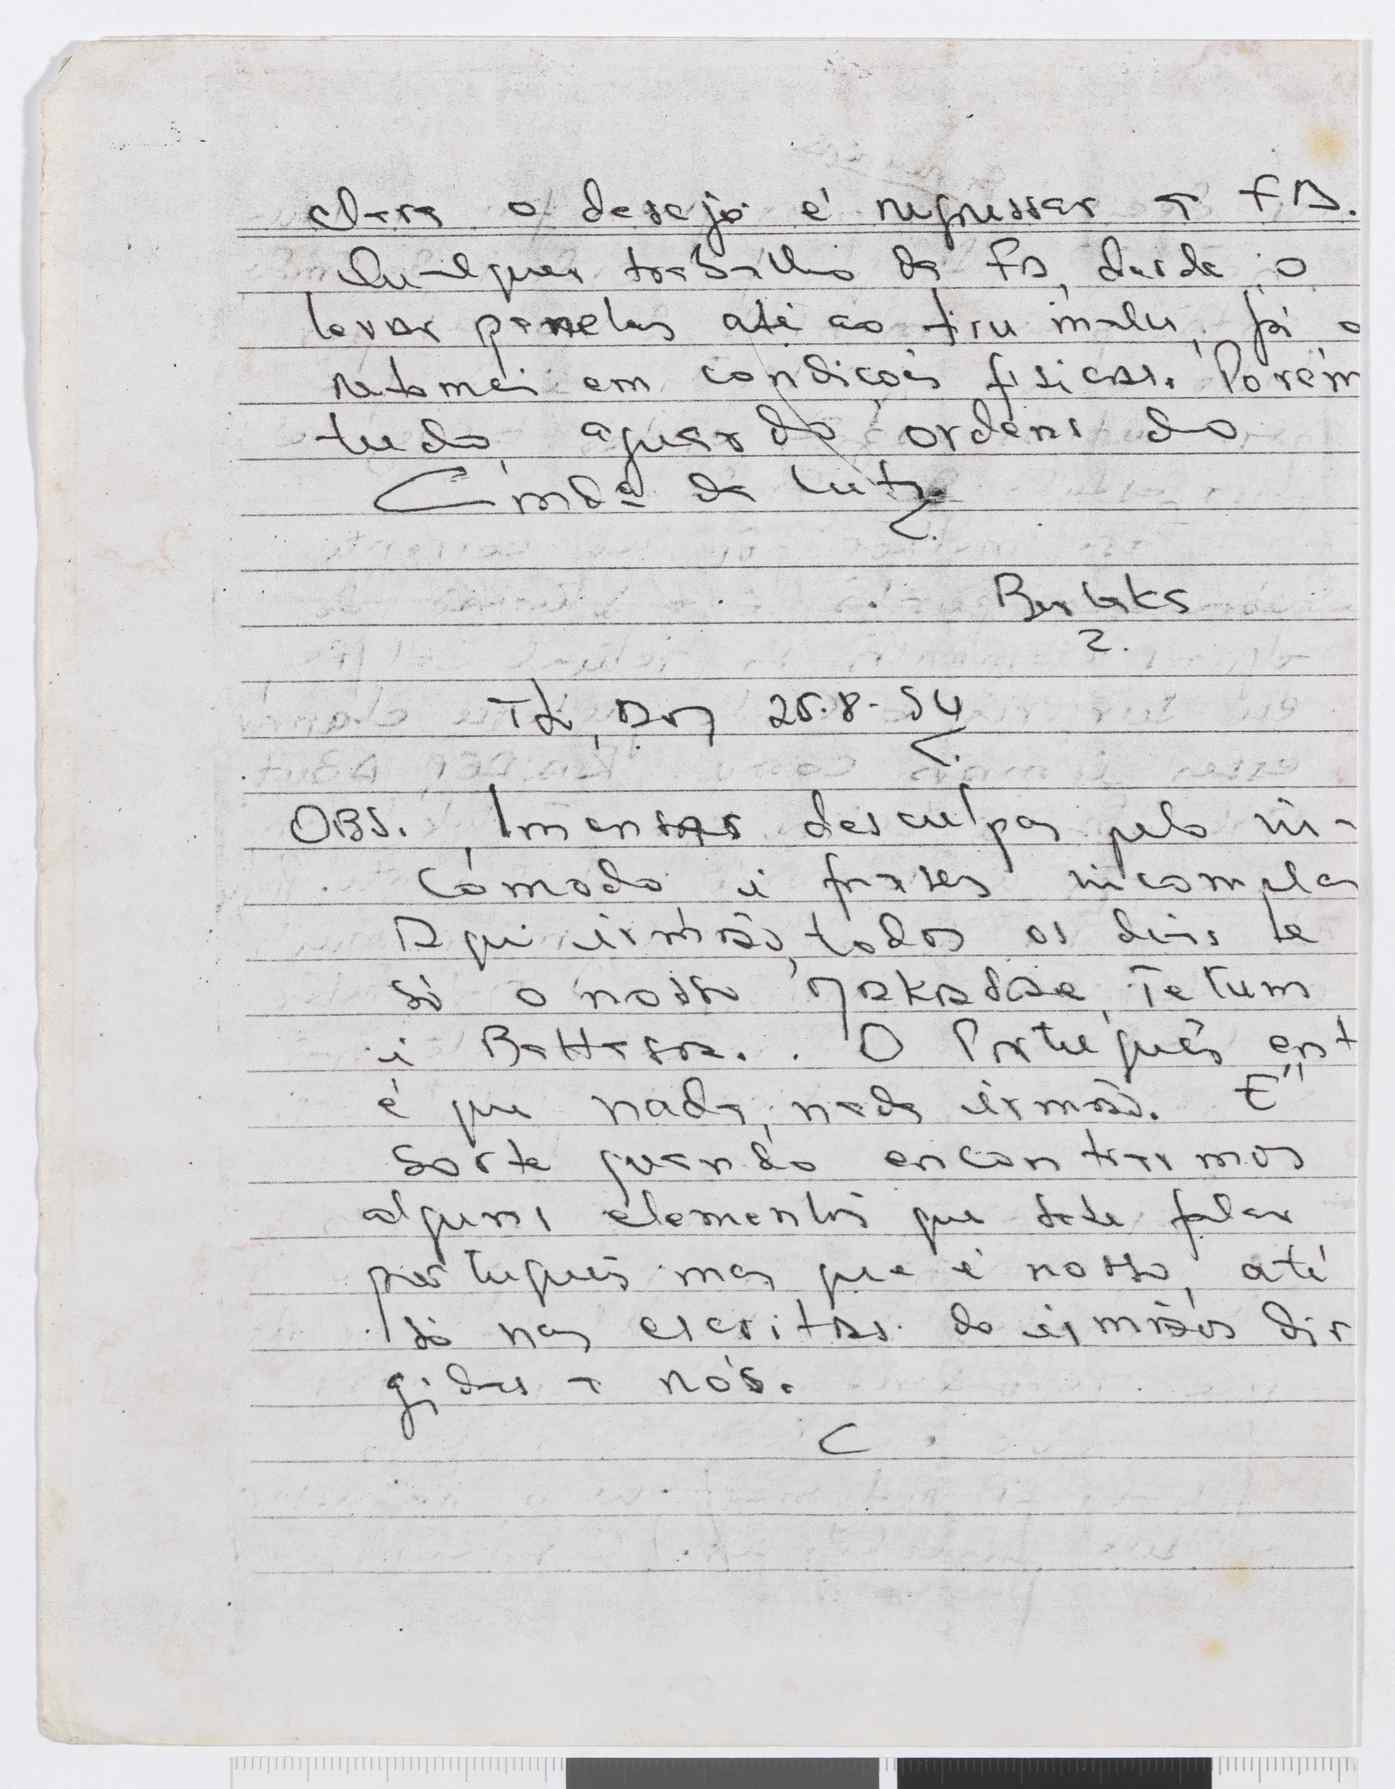 clara o desejo é regressar a FA.
Qualquer trabalho da FA, desde o
lavar panelas até ao tiru malu, já o
retomei em condições fisicas. Porém
tudo, aguardo ordens do
Cmdº da Luta
Berlaks
Aos 25.8.94
OBS. Imensas desculpas pelo in-
cómodo e frases incomple
Aqui irmão, todos os dias te
só o nosso Makadae, Tetum
e Bahasa. O Português ent
é que nada, nada irmão. É
sorte quando encontrarmos
alguns elementos que sabe falar
português mas que é nosso, até
só nas escritas do irmãos dir
gidas a nós.